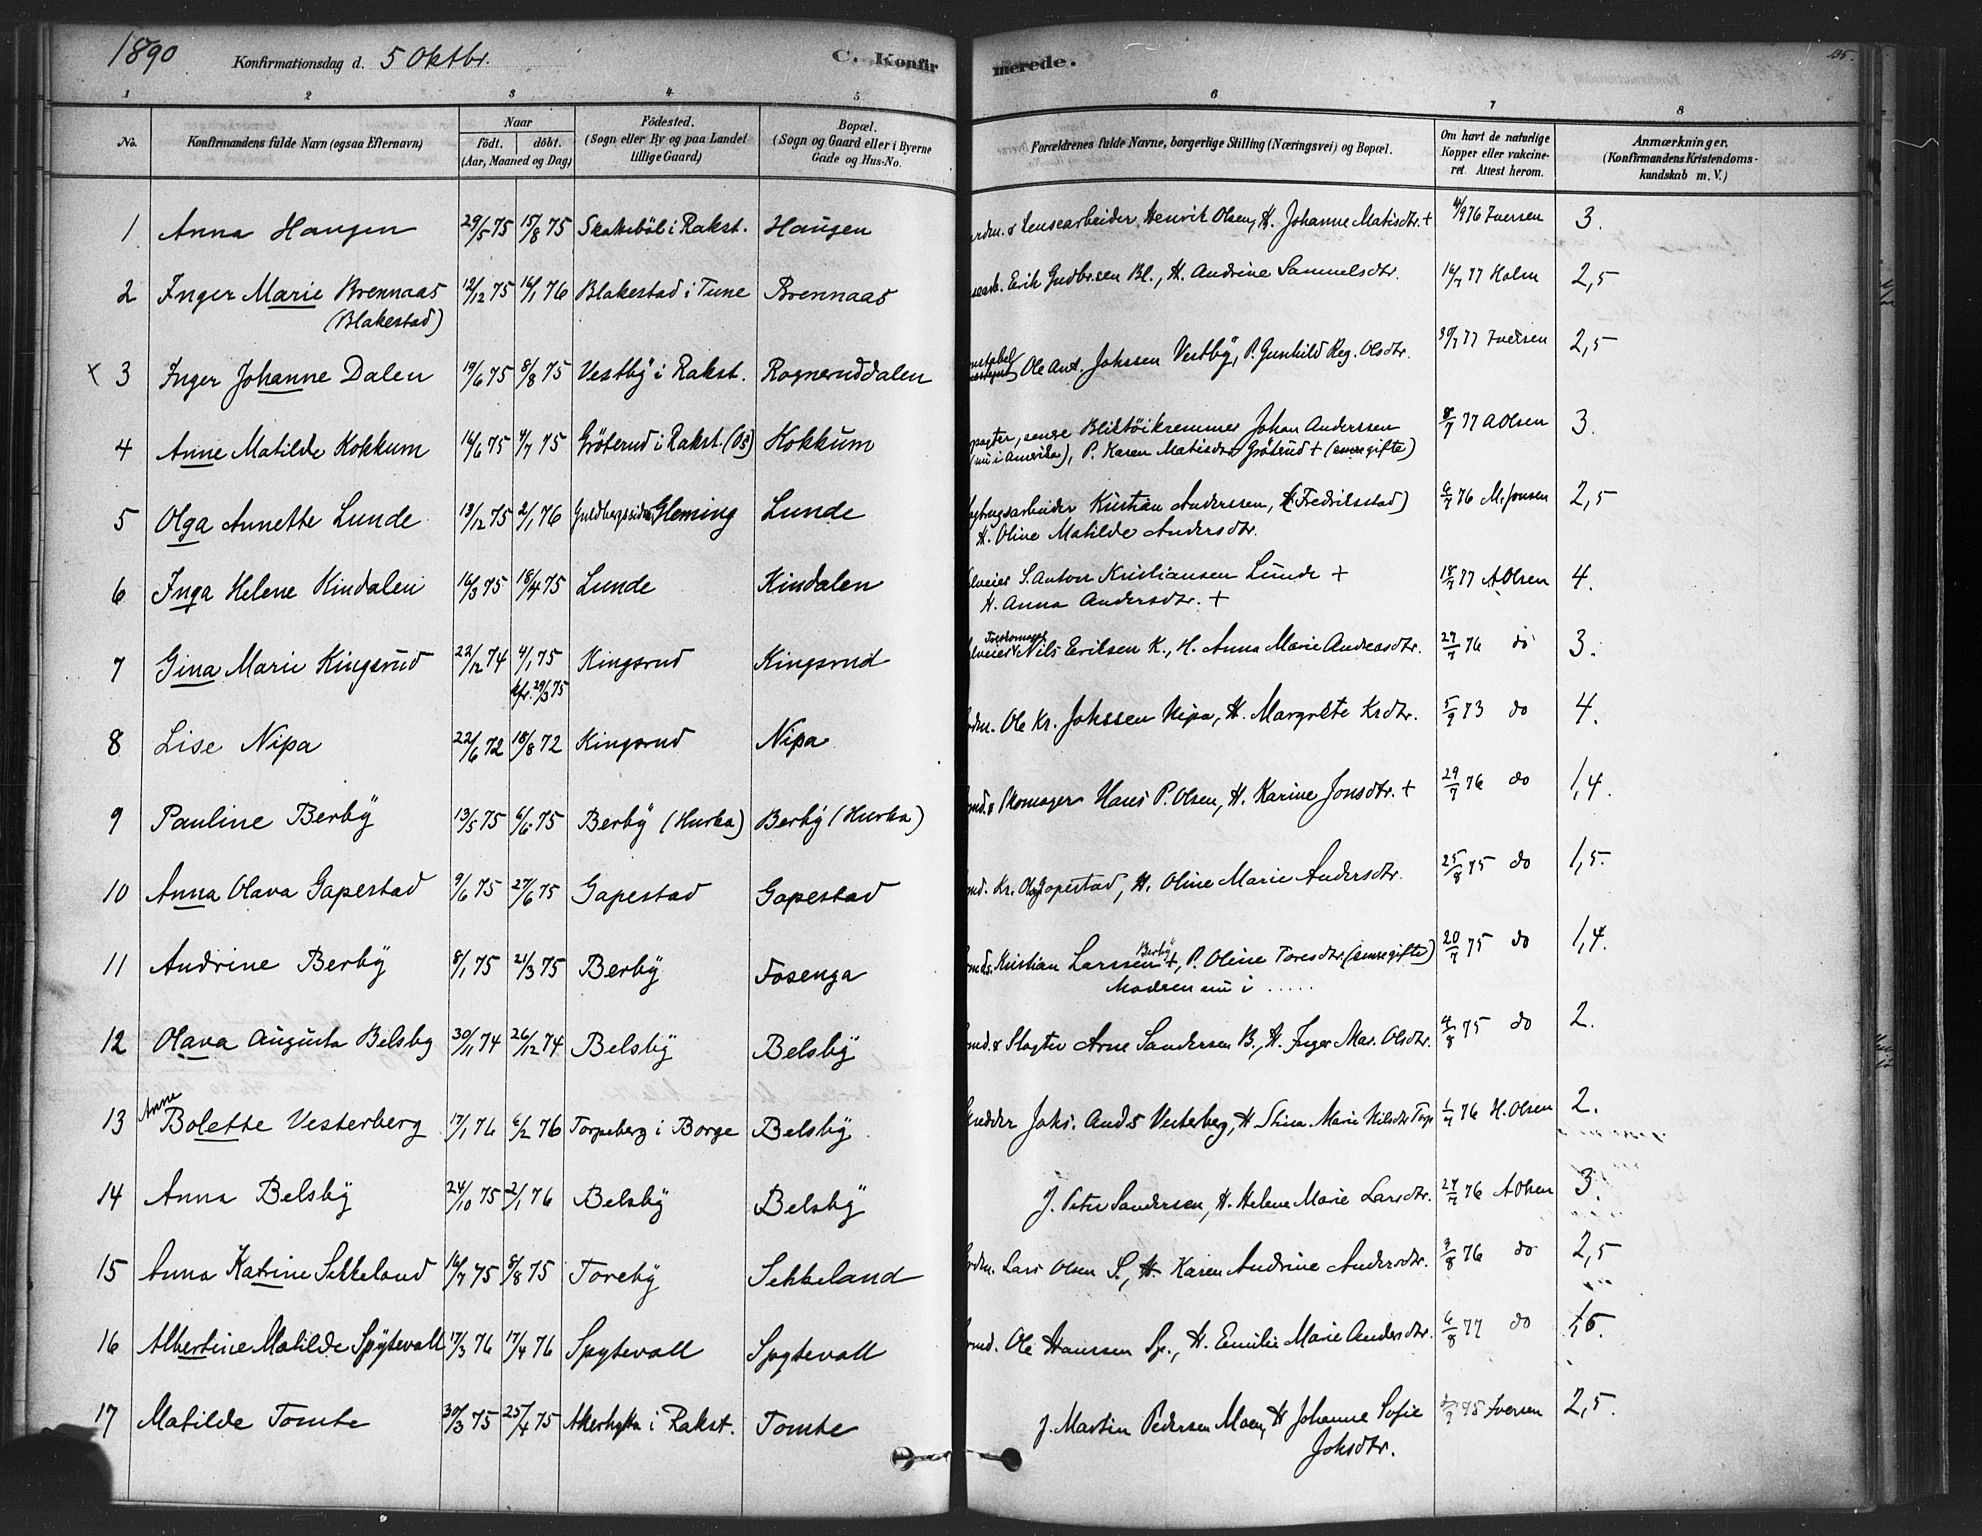 1890 Konfirmationsdag d. 5 Oktbr. C. Konfir merede. 135.
1 2 3 4 5 6 7 8
No. Konfirmandens fulde Navn (ogsaa Efternavn) Naar født. døbt. (Aar, Maaned og Dag) Fødested. (Sogn eller By og paa Landet tillige Gaard) Bopæl. (Sogn og Gaard eller i Byerne Gade og Hus-No. Forældrenes fulde Navne, borgerlige Stilling (Næringsvei) og Bopæl. Om havt de naturlige Kopper eller vakcineret. Attest herom. Anmærkninger. (Konfirmandens Kristendomskundskab m. V.)
1 Anna Haugen 29/5 75 15/8 75 Skakebøl i Rakst. Haugen & Lensearbeider Henrik Olsen, H. Johanne Matisdtr. + 76 Iversen 3.
2 Inger Marie Brennaas 12/12 75 16/1 76 Blakestad i Tune Brennaas Erik Gudbrsen Bl., H. Andrine Samuelsdtr. 16/7 77 Holm 2,5
(Blakestad)
x 3 Inger Johanne Dalen 19/6 75 8/8 75 Vestby i Rakst. Rogneruddalen Ole Ant. Johssen Vestby, P. Gunhild Reg. Olsdtr. 30/7 77 Iversen 2,5
4 Anne Matilde Kokkum 16/6 75 4/7 75 Grøterud i Rakst. (Os) Kokkum Bliktøikremmer Johan Anderssen 8/7 77 AOlsen 3.
(nu i Amerika), P. Karen Matisdtr Grøtrud + (gifte)
5 Olga Annette Lunde 13/12 75 2/1 76 Gleming Lunde Kristian Anderssen, (Fredriksstad) 6/7 76 M. Jonsen 2,5
H. Oline Matilde Andersdtr.
6 Inga Helene Kindalen 16/3 75 18/4 75 Lunde Kindalen S. Anton Kristiansen Lunde + 18/7 77 AOlsen 4.
H. Anna Andersdtr. +
7 Gina Marie Kingsrud 22/12 74 4/1 75 Kingsrud Kingsrud Nils Erilsen K., H. Anna Marie Andreasdtr. 27/7 76 do 3.
kfr. 29/3 75
8 Lise Nipa 22/6 72 18/8 72 Kingsrud Nipa Ole Kr. Johssen Nipa, H. Margrete Krdtr. 5/9 73 do 4.
9 Pauline Berby 13/5 75 6/6 75 Berby (Hurka) Berby (Hurka) & Skomager Hans P. Olsen, H. Karine Jonsdtr. + 29/7 76 do 1,4.
10 Anna Olava Gapestad 9/6 75 27/6 75 Gapestad Gapestad Kr. Gapestad, H. Oline Marie Andersdtr. 25/8 75 do 1,5.
11 Andrine Berby 8/1 75 21/3 75 Berby Fosenga Kristian Larssen Berby +, P. Oline Toresdtr. 20/7 75 do 1,4.
Modren nu i .....
12 Olava Augusta Belsby 30/11 74 26/12 74 Belsby Belsby & Slagter Arne Sandersen B., H. Inger Mar. Olsdtr. 4/8 75 do 2.
13 Anne Bolette Vesterberg 17/1 76 6/2 76 Torpeberg i Borge Belsby Johs. Ands Vesterberg, H Stina Marie Nilsdtr Torp 1/7 76 H. Olsen 2.
14 Anna Belsby 24/10 75 2/1 76 Belsby Belsby J. Peter Sandersen, H. Helene Marie Larsdtr. 27/7 76 AOlsen 3.
15 Anna Katrine Sekkeland 16/7 75 8/8 75 Toreby Sekkeland Lars Olsen S., H. Karen Andrine Andersdtr. 3/8 76 do 2,5
16 Albertine Matilde Spytevall 17/3 76 17/4 76 Spytevall Spytevall Ole Hanssen Sp., H. Emilie Marie Andersdtr. 6/8 77 do
17 Matilde Tomte 30/3 75 25/4 75 i Rakst. Tomte J. Martin Pedersen Moen, H Johanne Sofie Iversen 2,5.
Johsdtr.